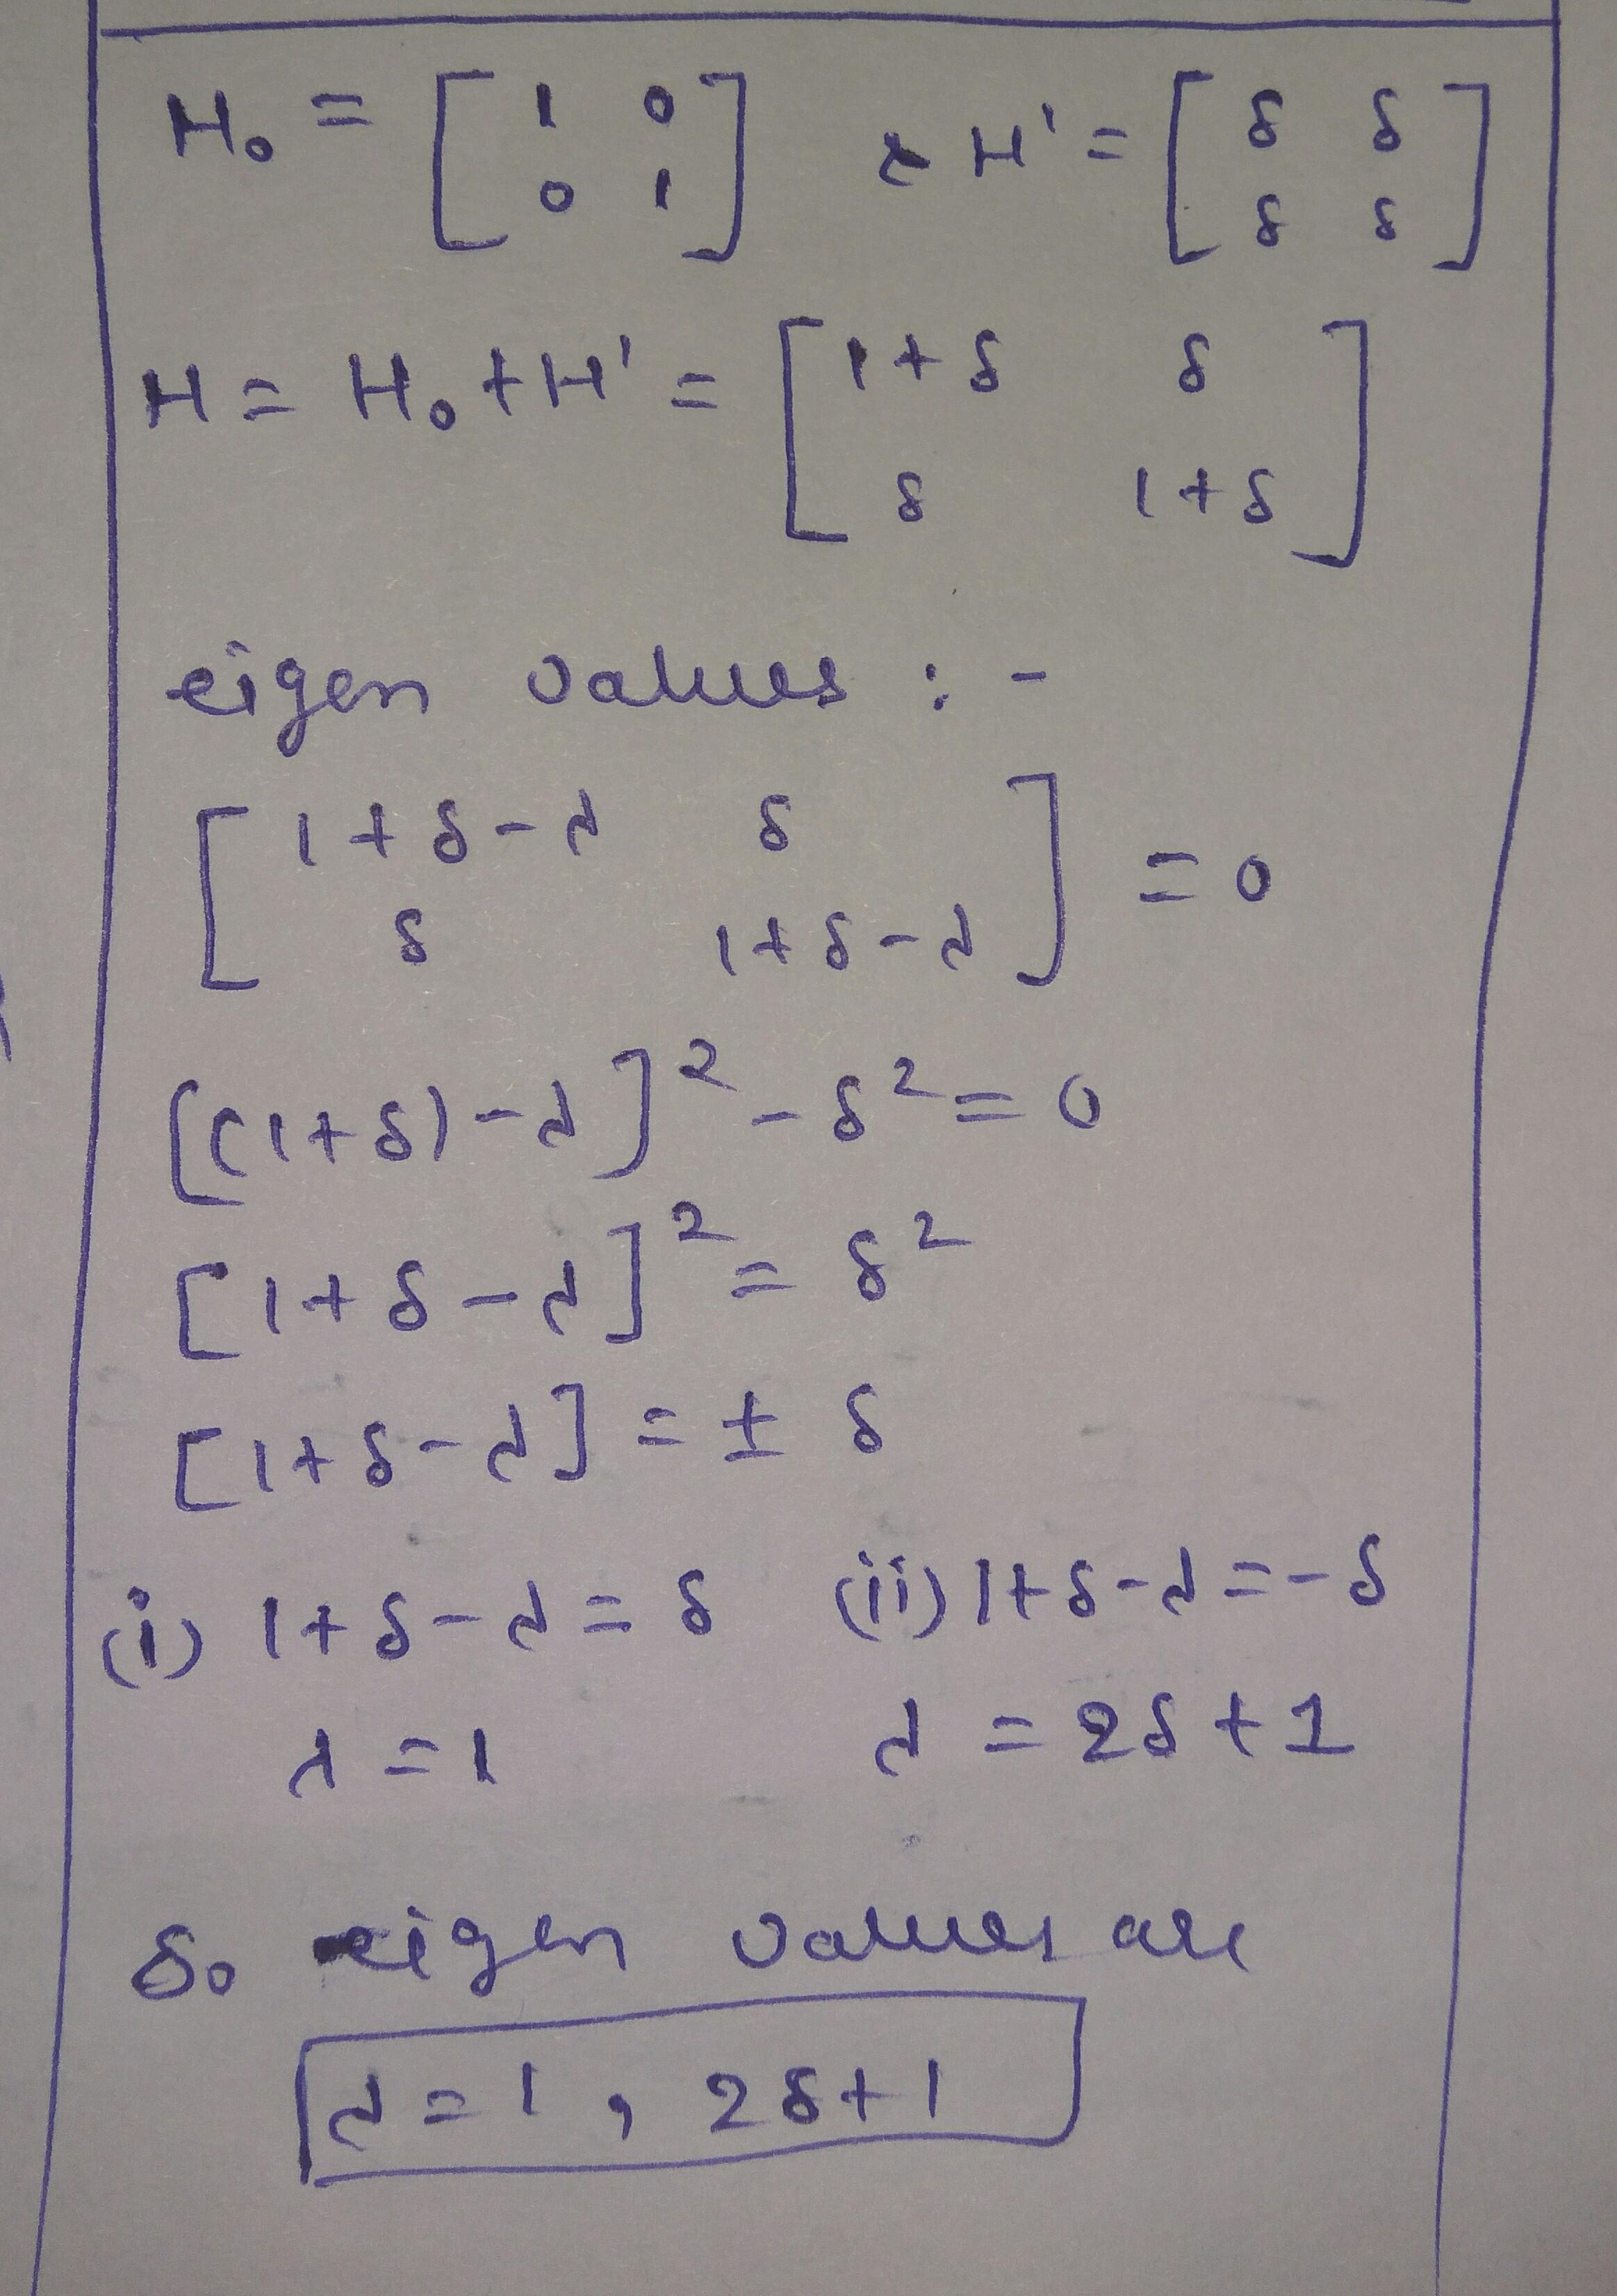 H₀ = [ 1 0 ; 0 1 ] & H' = [ δ δ ; δ δ ]
H = H₀ + H' = [ 1+δ δ ; δ 1+δ ]
eigen values :-
[ 1+δ-λ δ ; δ 1+δ-λ ] = 0
[(1+δ)-λ]² - δ² = 0
[1+δ-λ]² = δ²
[1+δ-λ] = ± δ
(i) 1+δ-λ = δ (ii) 1+δ-λ = -δ
λ = 1 λ = 2δ+1
So eigen values are
λ = 1 , 2δ+1